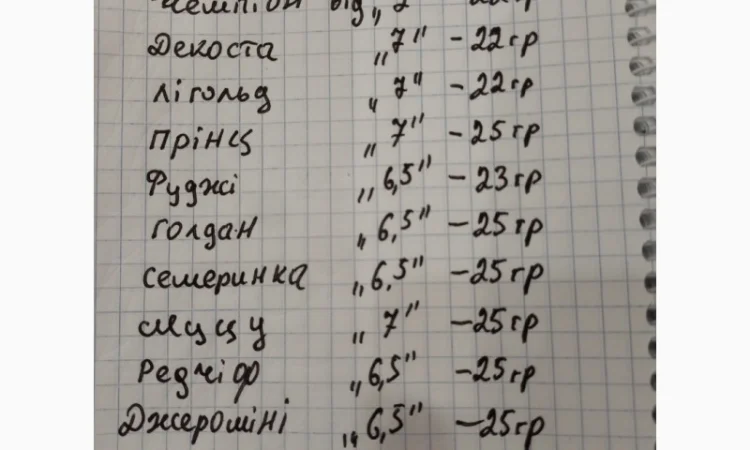 Чемпіон від „
Декоста „7" - 22 гр
Лігольд „7" - 22 гр
Прінц „7" - 25 гр
Фуджі „6,5" - 23 гр
Голдан „6,5" - 25 гр
Семеринка „6,5" - 25 гр
Муцу „7" - 25 гр
Редчіф „6,5" - 25 гр
Джероміні „6,5" - 25 гр